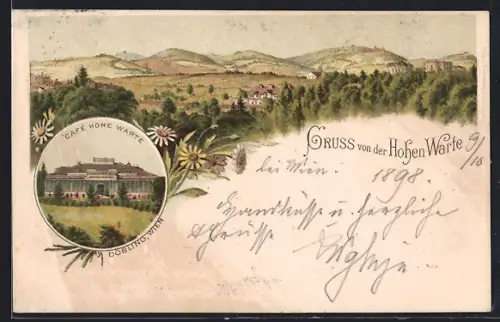 GRUSS von der Hohen Warte
9/10
bei Wien. 1898.
CAFE HOHE WARTE
Handküsse u. herzliche
Grüsse
DÖBLING, WIEN